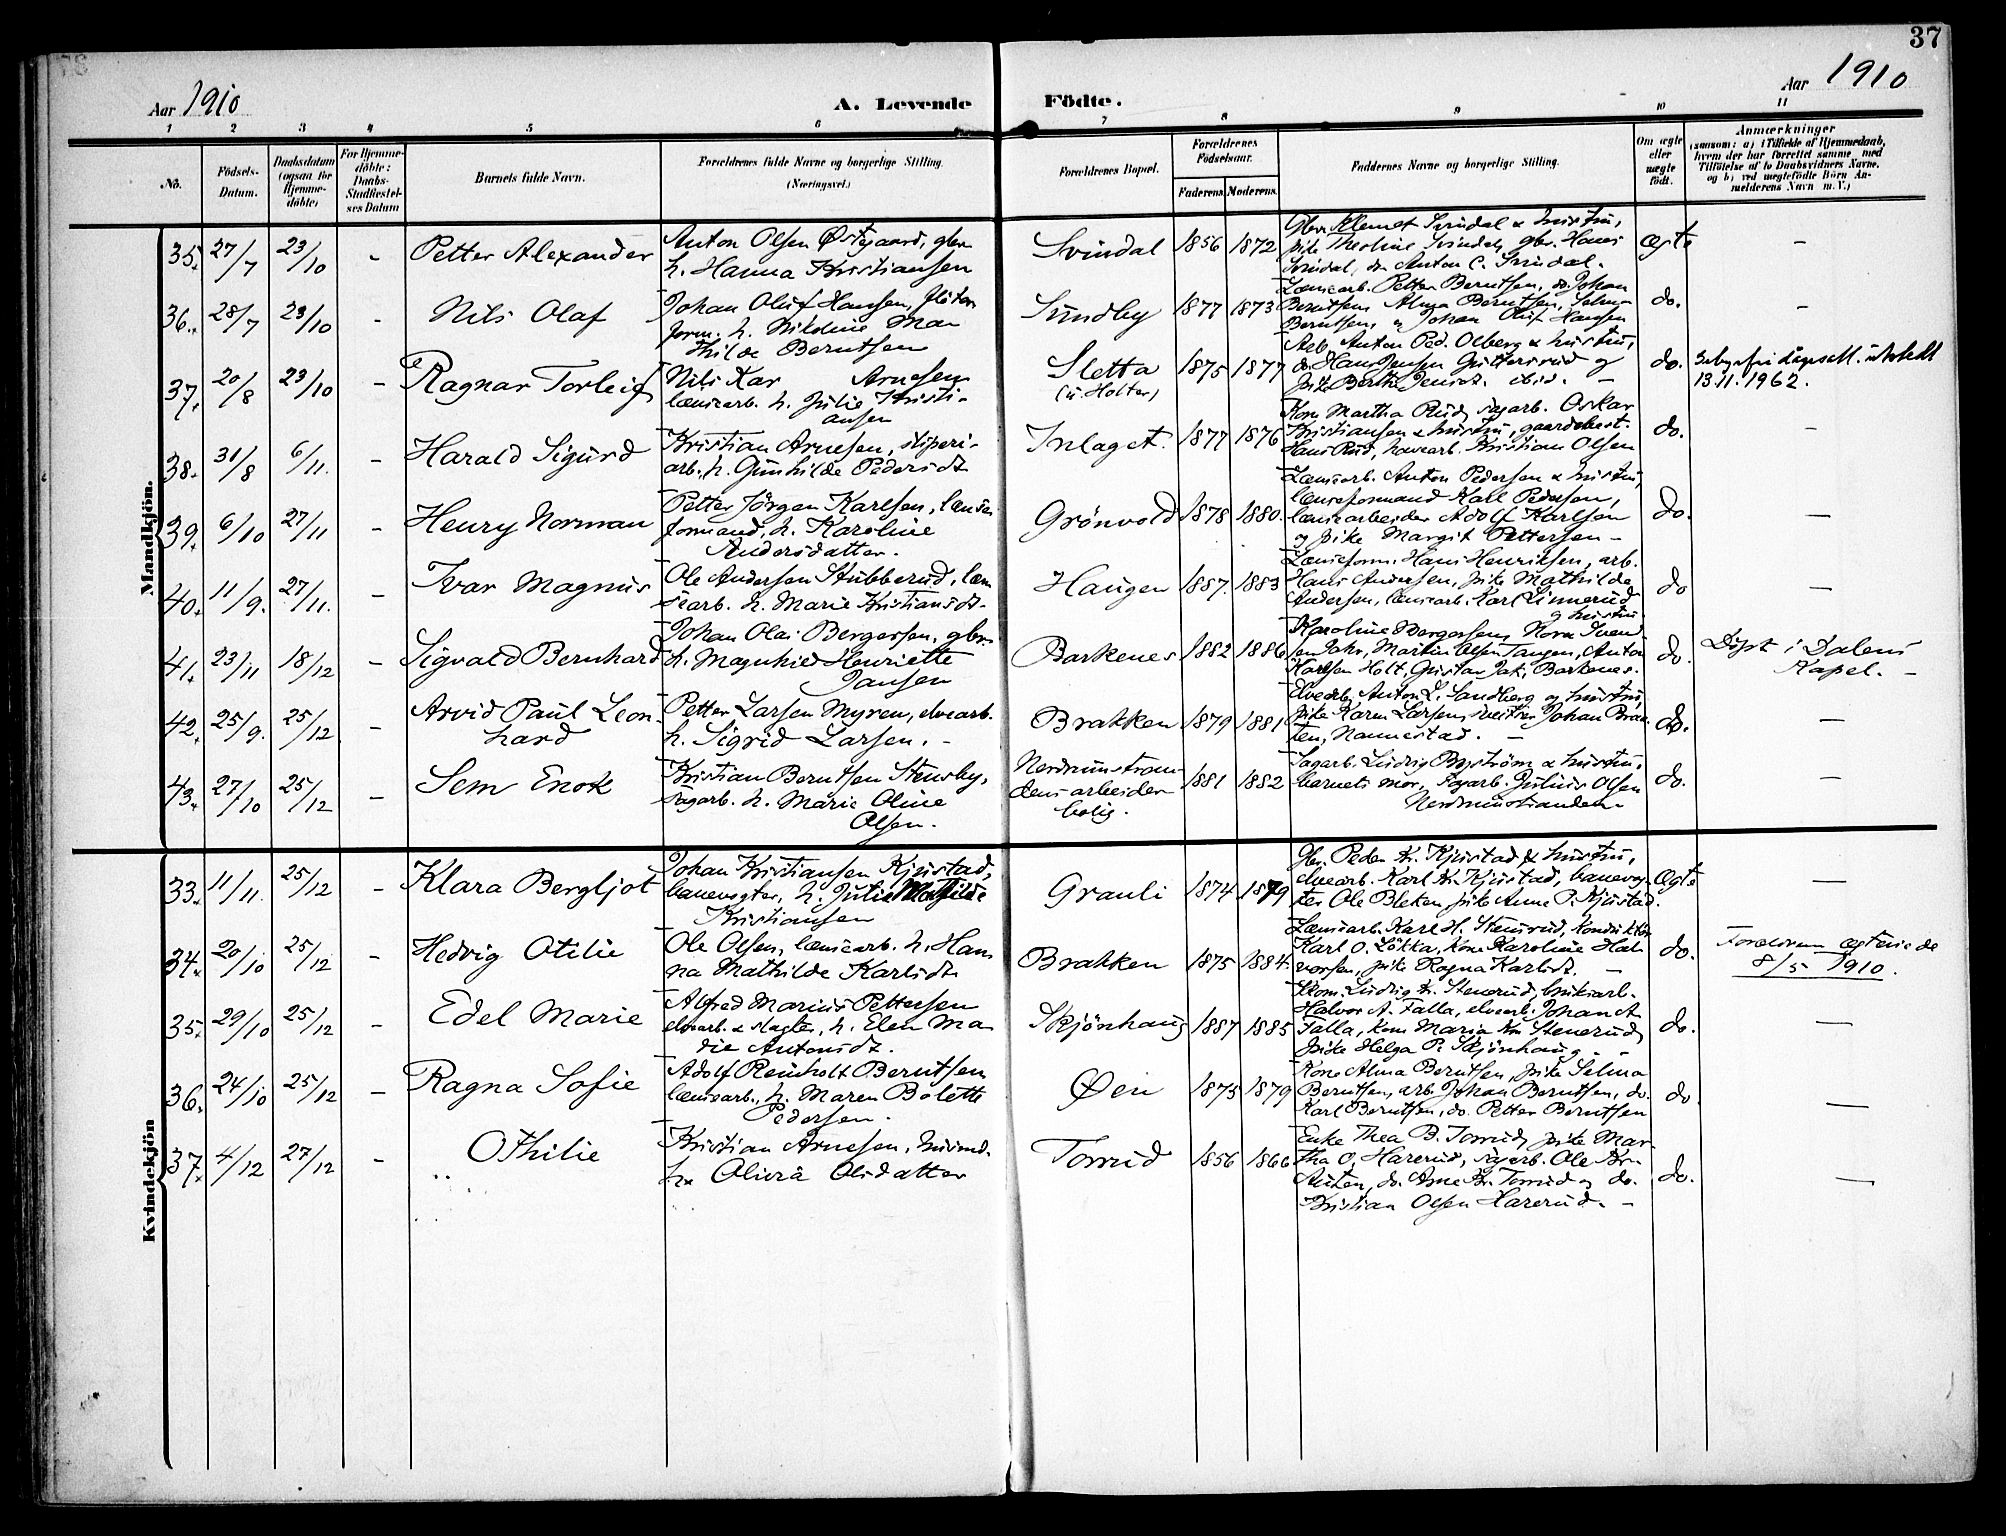 37
Aar 1910
A. Levende Födte.
Aar 1910
1 2 3 4 5 6 7 8 9 10 11
No.
Födsels-
Datum.
Daabsdatum
(ogsaa for
Hjemme-
döbte)
For Hjemme-
döbte:
Daabs-
Stadfæstel-
ses Datum
Barnets fulde Navn.
Forældrenes fulde Navne og borgerlige Stilling.
(Næringsvei.)
Forældrenes Bopæl.
Forældrenes
Födselsaar.
Faderens. Moderens.
Faddernes Navne og borgerlige Stilling.
Om ægte
eller
uægte
födt.
Anmærkninger
(saasom: a) i Tilfælde af Hjemmedaab,
hvem der har forrettet samme, med
Tilföielse af to Daabsvidners Navne,
og b) ved uægtefödte Börn An-
melderens Navn m. V.)
Mandkjön.
35. 27/7 23/10 - Petter Alexander
Anton Olsen Østgaard, gbr.
h. Hanna Kristiansen
Svindal 1856 1872
Gbr. Klemet Svindal & hustru,
pike Theoline Svindal, gbr. Hans
Svindal, do Anton C. Svindal.
ægte -
36. 28/7 23/10 - Nils Olaf
Johan Oluf Hansen, fløter
form. h. Nikoline Ma
thilde Berntsen
Sundby 1877 1873
Lænsearb. Petter Berntsen, do. Johan
Berntsen, Alma Berntsen, Selma
Berntsen, og Johan Oluf Hansen
do. -
37. 20/8 23/10 - Ragnar Torleif
Nils Kar Arnesen
lænsearb. h. Julie Kristi-
ansen
Sletta
(u. Holter)
1875 1877
Arb. Anton Ped. Olberg & hustru,
do Hans Jensen og
pike Berthe Jensdt. ibid. -
do.
13.11.1962.
38. 31/8 6/11. - Harald Sigurd
Kristian Arnesen, sliperi-
arb. h. Gunhilde Pedersdt
Inlaget. 1877 1876
Kone Martha Rud, sagarb. Oskar
Kristiansen & hustru, gaardbest.
Hans Rud, havearb. Kristian Olsen
do. -
39. 6/10 27/11 - Henry Norman
Petter Jörgen Karlsen, lænse
formand, h. Karoline
Andersdatter.
Grönvold 1878 1880.
Lænsearb. Anton Pedersen & hustru,
lænseformand Karl Pedersen,
lænsearbeider Adolf Karlsen
og pike Margit Pettersen -
do. -
40. 11/9. 27/11. - Ivar Magnus
Ole Andersen Stubberud, læn
searb. h. Marie Kristiansdt.
Haugen 1887. 1883
Lænseform. Hans Henriksen, arb.
Hans Andersen, pike Mathilde
Andersen, lænsearb. Karl Linnerud
og hustru
do -
41. 23/11 18/12 - Sigvald Bernhard
Johan Olai Bergersen, gbr.
h. Magnhild Henriette
Jansen
Barkenes 1882 1886
Karoline Bergersen, Nora Svend-
sen Jahr, Martin Olsen Tangen, Anton
Karlsen Holt, Gustav Jak. Barkenes.
do. Döpt i Dalens
Kapel. -
42. 25/9. 25/12 - Arvid Paul Leon
hard
Petter Larsen Myren, elvearb.
h. Sigrid Larsen. -
Brakken 1879 1881
Elvearb. Anton L. Sandberg og hustru,
pike Karen Larsen, Johan Braa
ten, Nannestad. -
do. -
43. 27/10 25/12 - Sem Enok
Kristian Berntsen Stensby,
sagarb. h. Marie Oline
Olsen.
Nerdrumstran-
dens arbeider
bolig.
1881 1882
Sagarb. Ludvig Byström & hustru,
barnets mor, sagarb. Julius Olsen
Nerdrumstranden.
do. -
Kvindekjön
33. 11/11. 25/12 - Klara Bergljot
Johan Kristiansen Kjustad,
banevogter, h. Julie Mathilde
Kristiansen
Grauli 1874 1879
Gbr. Peder Kr. Kjustad & hustru,
elvearb. Karl Kr. Kjustad, banevog-
ter Ole Bleken, pike Anne P. Kjustad.
Ægte -
34. 20/10 25/12 - Hedvig Otilie
Ole Olsen, lænsearb. h. Han
na Mathilde Karlsdt
Brakken 1875 1884.
Lænsearb. Karl H. Stensrud, konduktör
Karl O. Løkka, kone Karoline Hal
vorsen, pike Ragna Karlsdt. -
do. Forældrene ægteviede
8/5 1910.
35. 29/10 25/12 - Edel Marie
Alfred Marius Pettersen
elvearb. & slagter, h. Elen Ma
rie Antonsdt.
Skjönhaug 1887 1885
Ekom. Ludvig Kr. Stenerud, bruksarb.
Halvor A. Falla, elvearb. Johan A.
Falla, kone Maria Kr. Stenerud,
pike Helga P. Skjönhaug. -
do. -
36. 24/10 25/12 - Ragna Sofie
Adolf Reinholt Berntsen
lænsearb., h. Maren Bolette
Pedersen.
Øien 1875 1879
Kone Alma Berntsen, pike Selma
Berntsen, arb. Johan Berntsen, do.
Karl Berntsen, do. Petter Berntsen
do. -
37. 4/12 27/12 - Othilie
Kristian Arnesen, husmd.
h. Olivia Olsdatter
Torrud 1856 1866
Enke Thea B. Torrud, pike Mar
tha O. Harerud, sagarb. Ole Kr.
do. Arne Kr. Torrud og do.
Kristian Olsen Harerud. -
do. -